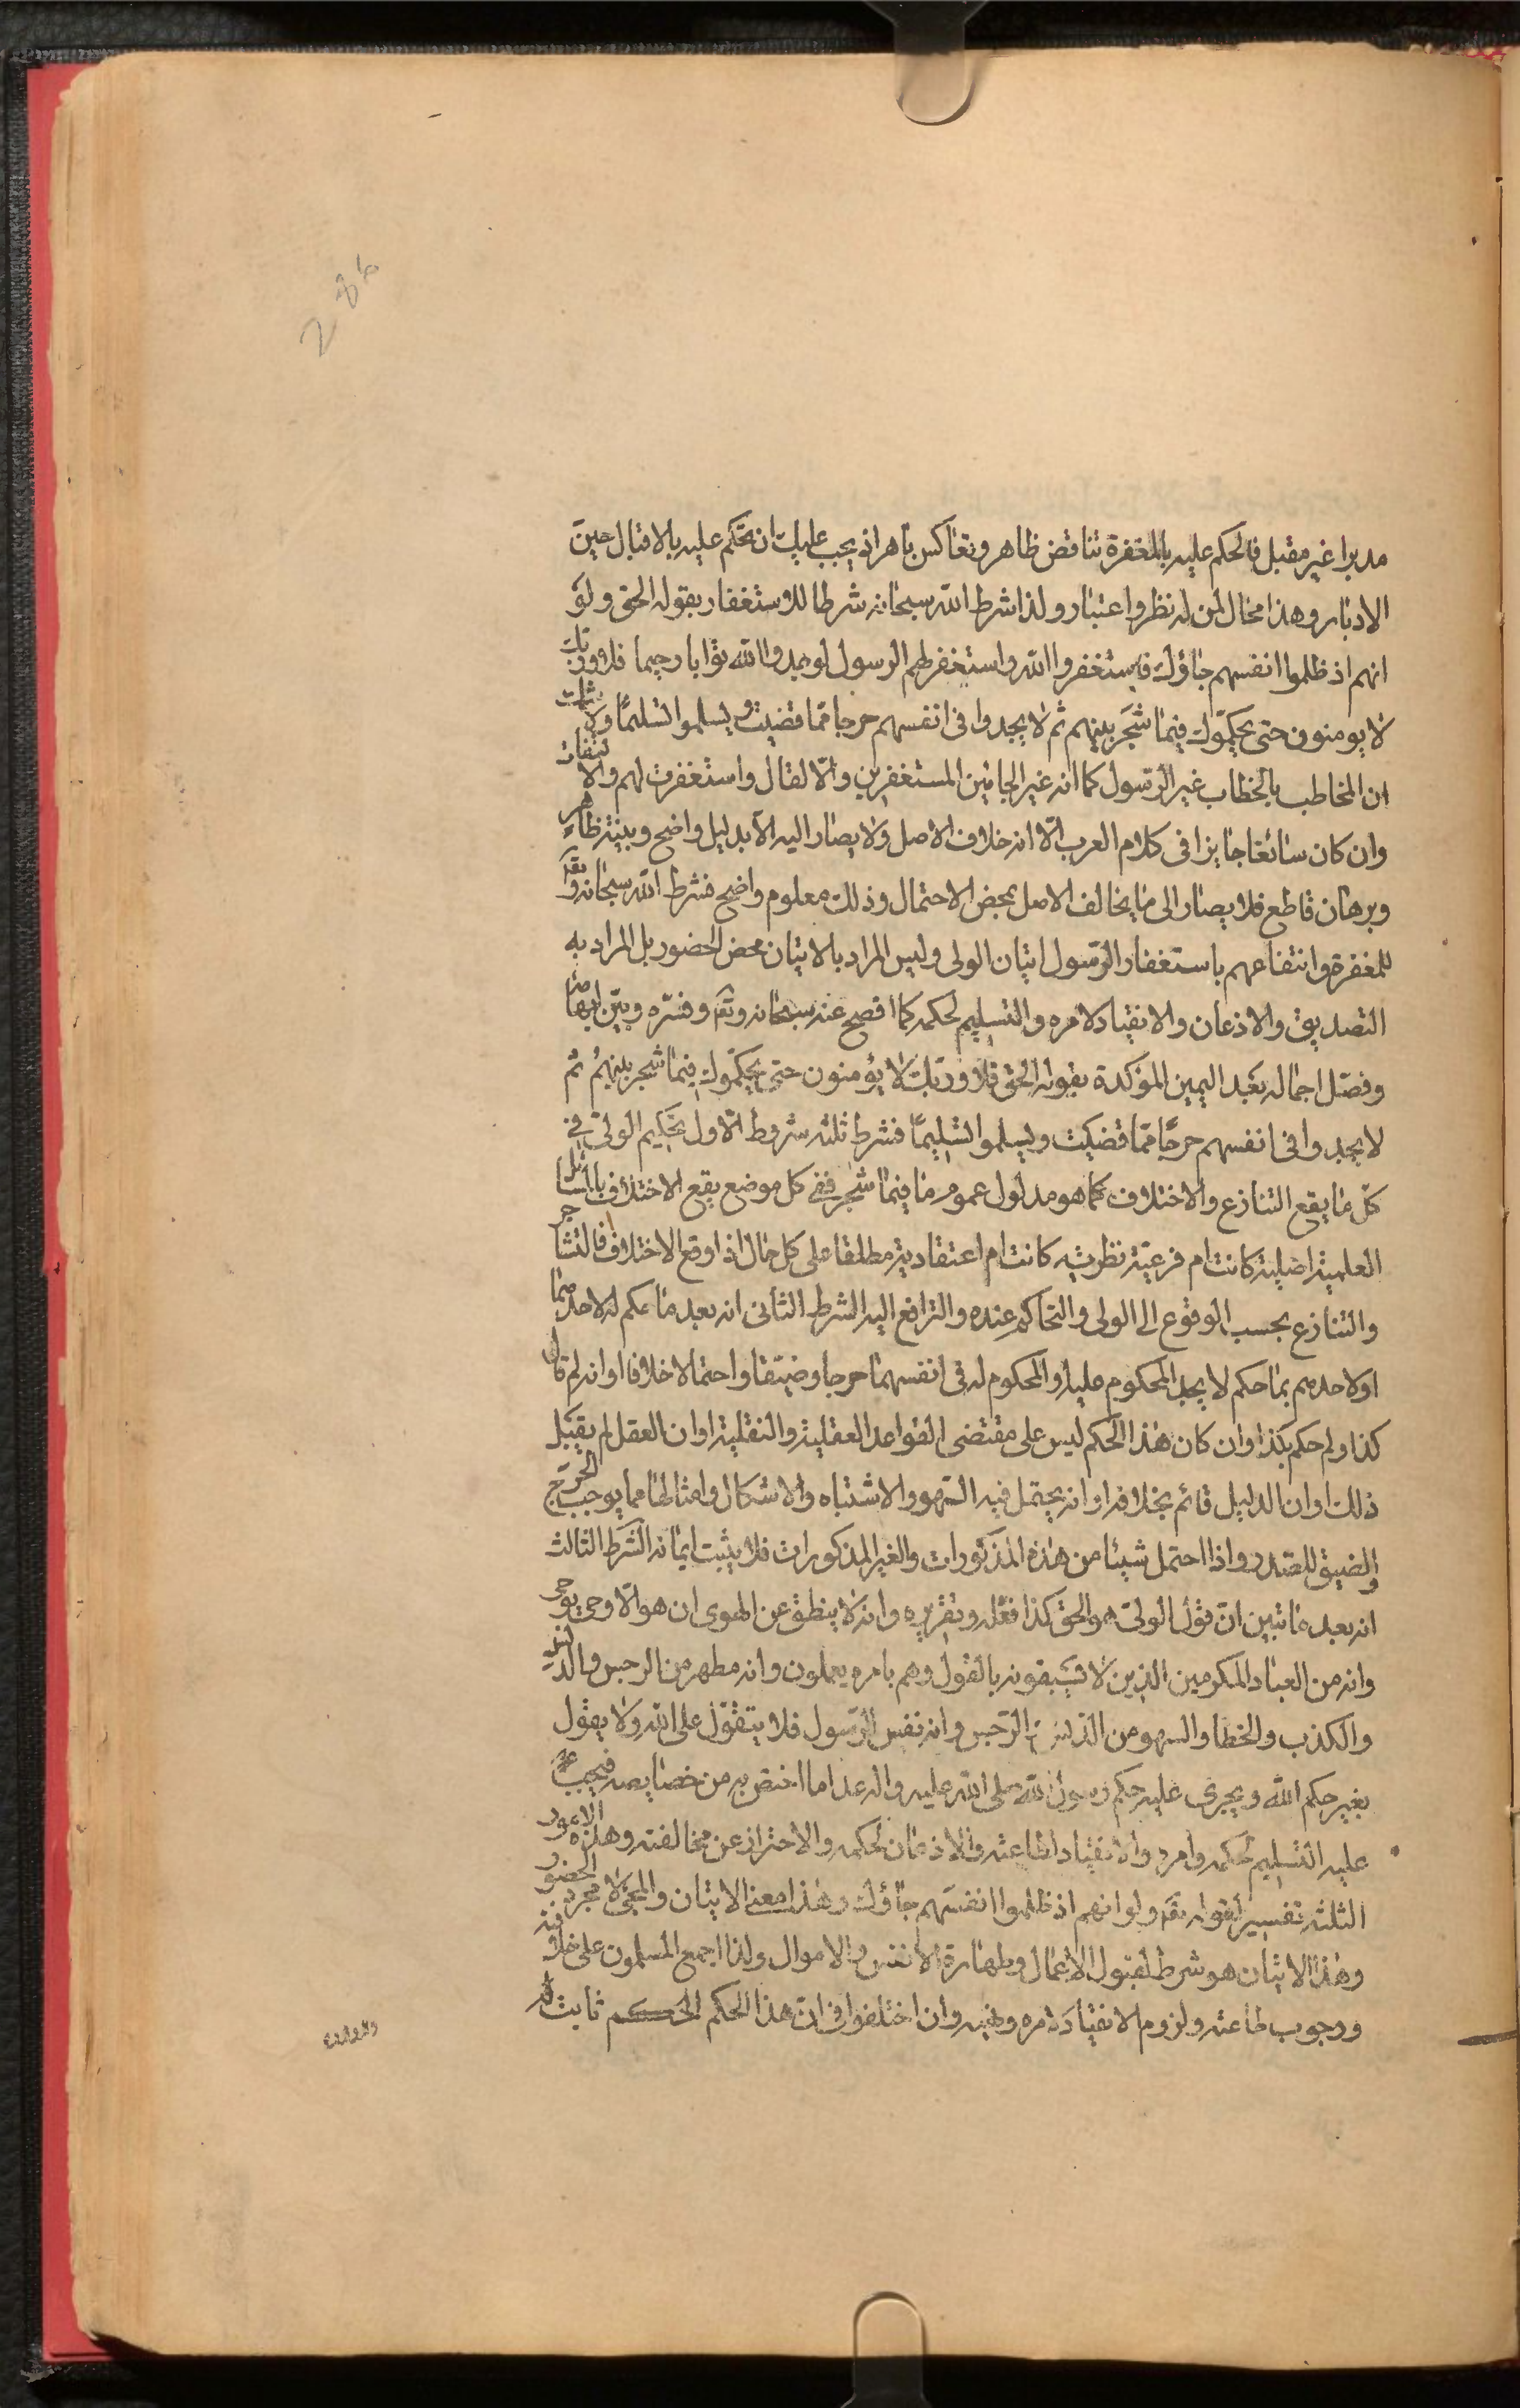 286
مدبرا غير مقبل فالحكم عليه بالمغفرة تناقض ظاهر وتعاكس باهر اذ يجب عليك ان تحكم عليه بالاقبال حين
الادبار وهذا محال لمن له نظر واعتبار ولذا شرط الله سبحانه شرطا للاستغفار بقوله الحق ولو
انهم اذ ظلموا انفسهم جاؤك فاستغفروا الله واستغفر لهم الرسول لوجدوا الله توابا رحيما فلا وربك
لا يومنون حتى يحكموك فيما شجر بينهم ثم لا يجدوا في انفسهم حرجا مما قضيت ويسلموا تسليما ولا شك
ان المخاطب بالخطاب غير الرسول كما انه غير الجائين المستغفرين والا لقال واستغفرت لهم والالتفات
وان كان سائغا جايزا في كلام العرب الا انه خلاف الاصل ولا يصار اليه الا بدليل واضح وبينة ظاهرة
وبرهان قاطع فلا يصار الى ما يخالف الاصل بمحض الاحتمال وذلك معلوم واضح فشرط الله سبحانه وتعـ
للمغفرة وانتفاعهم باستغفار الرسول اتيان الولى وليس المراد بالاتيان محض الحضور بل المراد به
التصديق والاذعان والانقياد لامره والتسليم لحكمه كما افصح عنه سبحانه وتعـ وفسره وبين
وفصل اجماله بعد اليمين المؤكدة بقوله الحق فلا وربك لا يؤمنون حتى يحكموك فيما شجر بينهم ثم
لا يجدوا في انفسهم حرجا مما قضيت ويسلموا تسليما فشرط ثلثه شروط الاول تحكيم الولى في
كل ما يقع التنازع والاختلاف كما هو مدلول عموم ما فيما شجر ففى كل موضع يقع الاختلاف بالمسائل
العلمية اصلية كانت ام فرعية نظرية كانت ام اعتقادية مطلقا على كل حال اذا وقع الاختلاف فالتشاجر
والتنازع بحسب الوقوع الى الولى والتحاكم عنده والترافع اليه الشرط الثانى انه بعد ما حكم لاحدهما
او لاحدهم بما حكم لا يجد المحكوم عليه والمحكوم له في انفسهما حرجا وضيقا واحتمالا خلافا او انه لم قال
كذا ولم حكم بكذا وان كان هذا الحكم ليس على مقتضى القواعد العقلية والنقلية او ان العقل لم يقبل
ذلك او ان الدليل قائم بخلافه او انه يحتمل فيه السهو والاشتباه والاشكال وامثالها مما يوجب الحرج
والضيق للصدر واذا احتمل شيئا من هذه المذكورات والغير المذكورات فلا يثبت ايمانه الشرط الثالث
انه بعد ما تبين ان قول الولى هو الحق كذا فعله وتقريره وانه لا ينطق عن الهوى ان هو الا وحى يوحى
وانه من العباد المكرمين الذين لا يسبقونه بالقول وهم بامره يعملون وانه مطهر من الرجس والدنس
والكذب والخطا والسهو من الدنس والرجس وانه نفس الرسول فلا يتقول على الله ولا يقول
بغير حكم الله ويجرى عليه حكم رسول الله صلى الله عليه واله عدا ما اختص به من خصايصه فيجب
عليه التسليم لحكمه وامره والانقياد لطاعته والاذعان لحكمه والاحتراز عن مخالفته وهذه الامور
الثلثه تفسير لقوله تعـ ولو انهم اذ ظلموا انفسهم جاؤك وهذا معنى الاتيان والمجئ لا مجرد الحضور
وهذا الاتيان هو شرط لقبول الاعمال وطهارة الانفس والاموال ولذا اجمع المسلمون على خلافته
ووجوب طاعته ولزوم الانقياد لامره ونهيه وان اختلفوا في ان هذا الحكم الحكم ثابت له